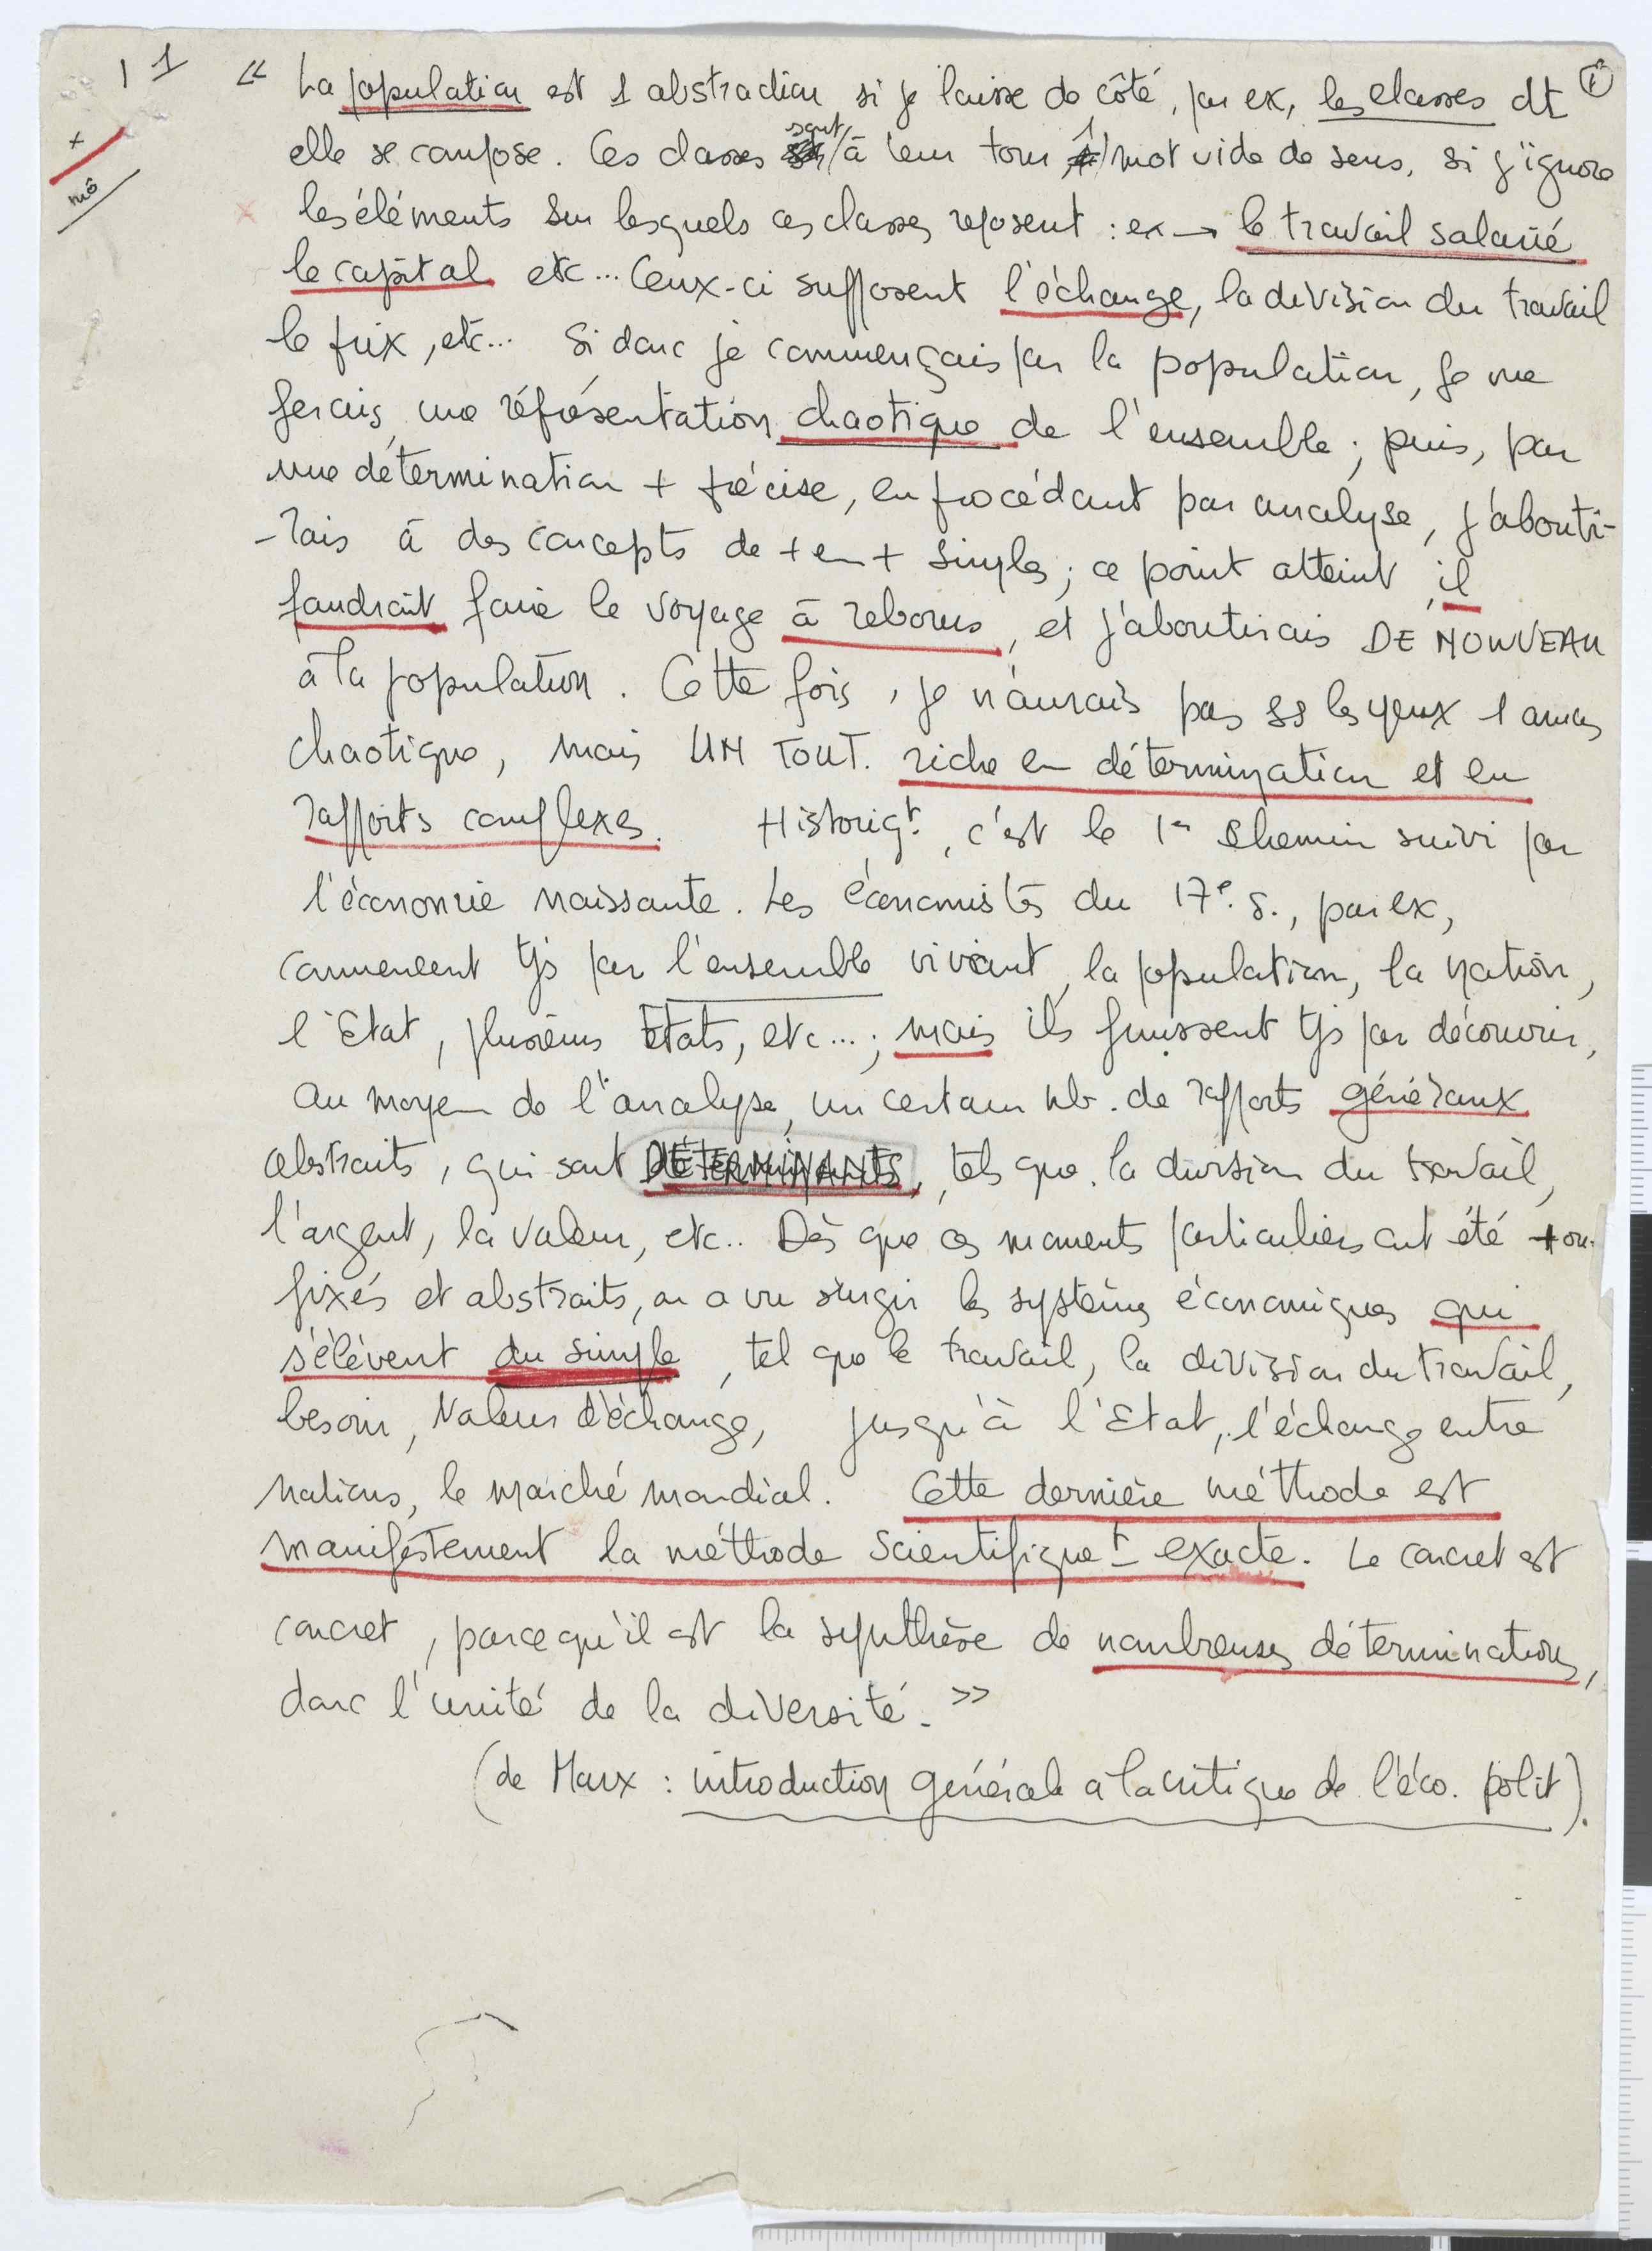 1 1
+
mô
« La population est 1 abstraction si je laisse de côté, par ex, les classes dt
elle se compose. Ces classes sont à leur tour 1 mot vide de sens, si j'ignore
les éléments sur lesquels ces classes reposent : ex → le travail salarié
le capital etc... Ceux-ci supposent l'échange, la division du travail
le prix, etc... Si donc je commençais par la population, je me
ferais une représentation chaotique de l'ensemble ; puis, par
une détermination + précise, en procédant par analyse, j'abouti-
-rais à des concepts de + en + simples ; ce point atteint, il
faudrait faire le voyage à rebours, et j'aboutirais DE NOUVEAU
à la population. Cette fois, je n'aurais pas ss les yeux 1 amas
chaotique, mais UN TOUT. riche en détermination et en
rapports complexes. Historiqt., c'est le 1er chemin suivi par
l'économie naissante. Les économistes du 17e. s., par ex,
commencent tjs par l'ensemble vivant, la population, la nation,
l'Etat, plusieurs Etats, etc... ; mais ils finissent tjs par découvrir,
au moyen de l'analyse, un certain nb. de rapports généraux
abstraits, qui sont DÉTERMINANTS, tels que la division du travail,
l'argent, la valeur, etc.. Dès que ces moments particuliers ont été + ou -
fixés et abstraits, on a vu surgir les systèmes économiques qui
s'élèvent du simple, tel que le travail, la division du travail,
besoin, valeur d'échange, jusqu'à l'Etat, l'échange entre
nations, le marché mondial. Cette dernière méthode est
manifestement la méthode scientifiquet exacte. Le concret est
concret, parce qu'il est la synthèse de nombreuses déterminations,
donc l'unité de la diversité. »
(de Marx : introduction générale a la critique de l'éco. polit).